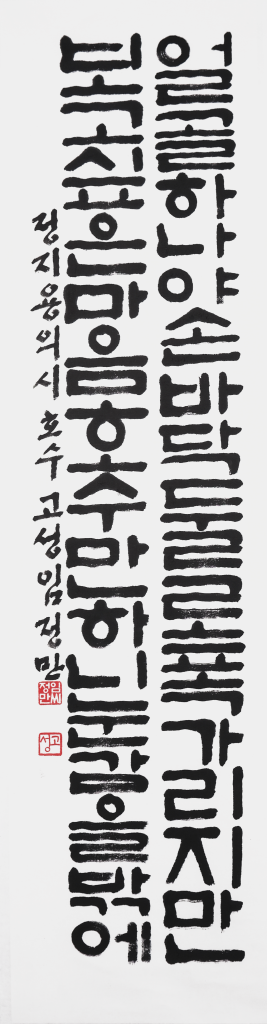 얼골하나야손바닥둘로폭가리지만
보고싶은마음호수만하니눈감을밖에
정지용의시 호수 고성임정만
임씨정만
고성